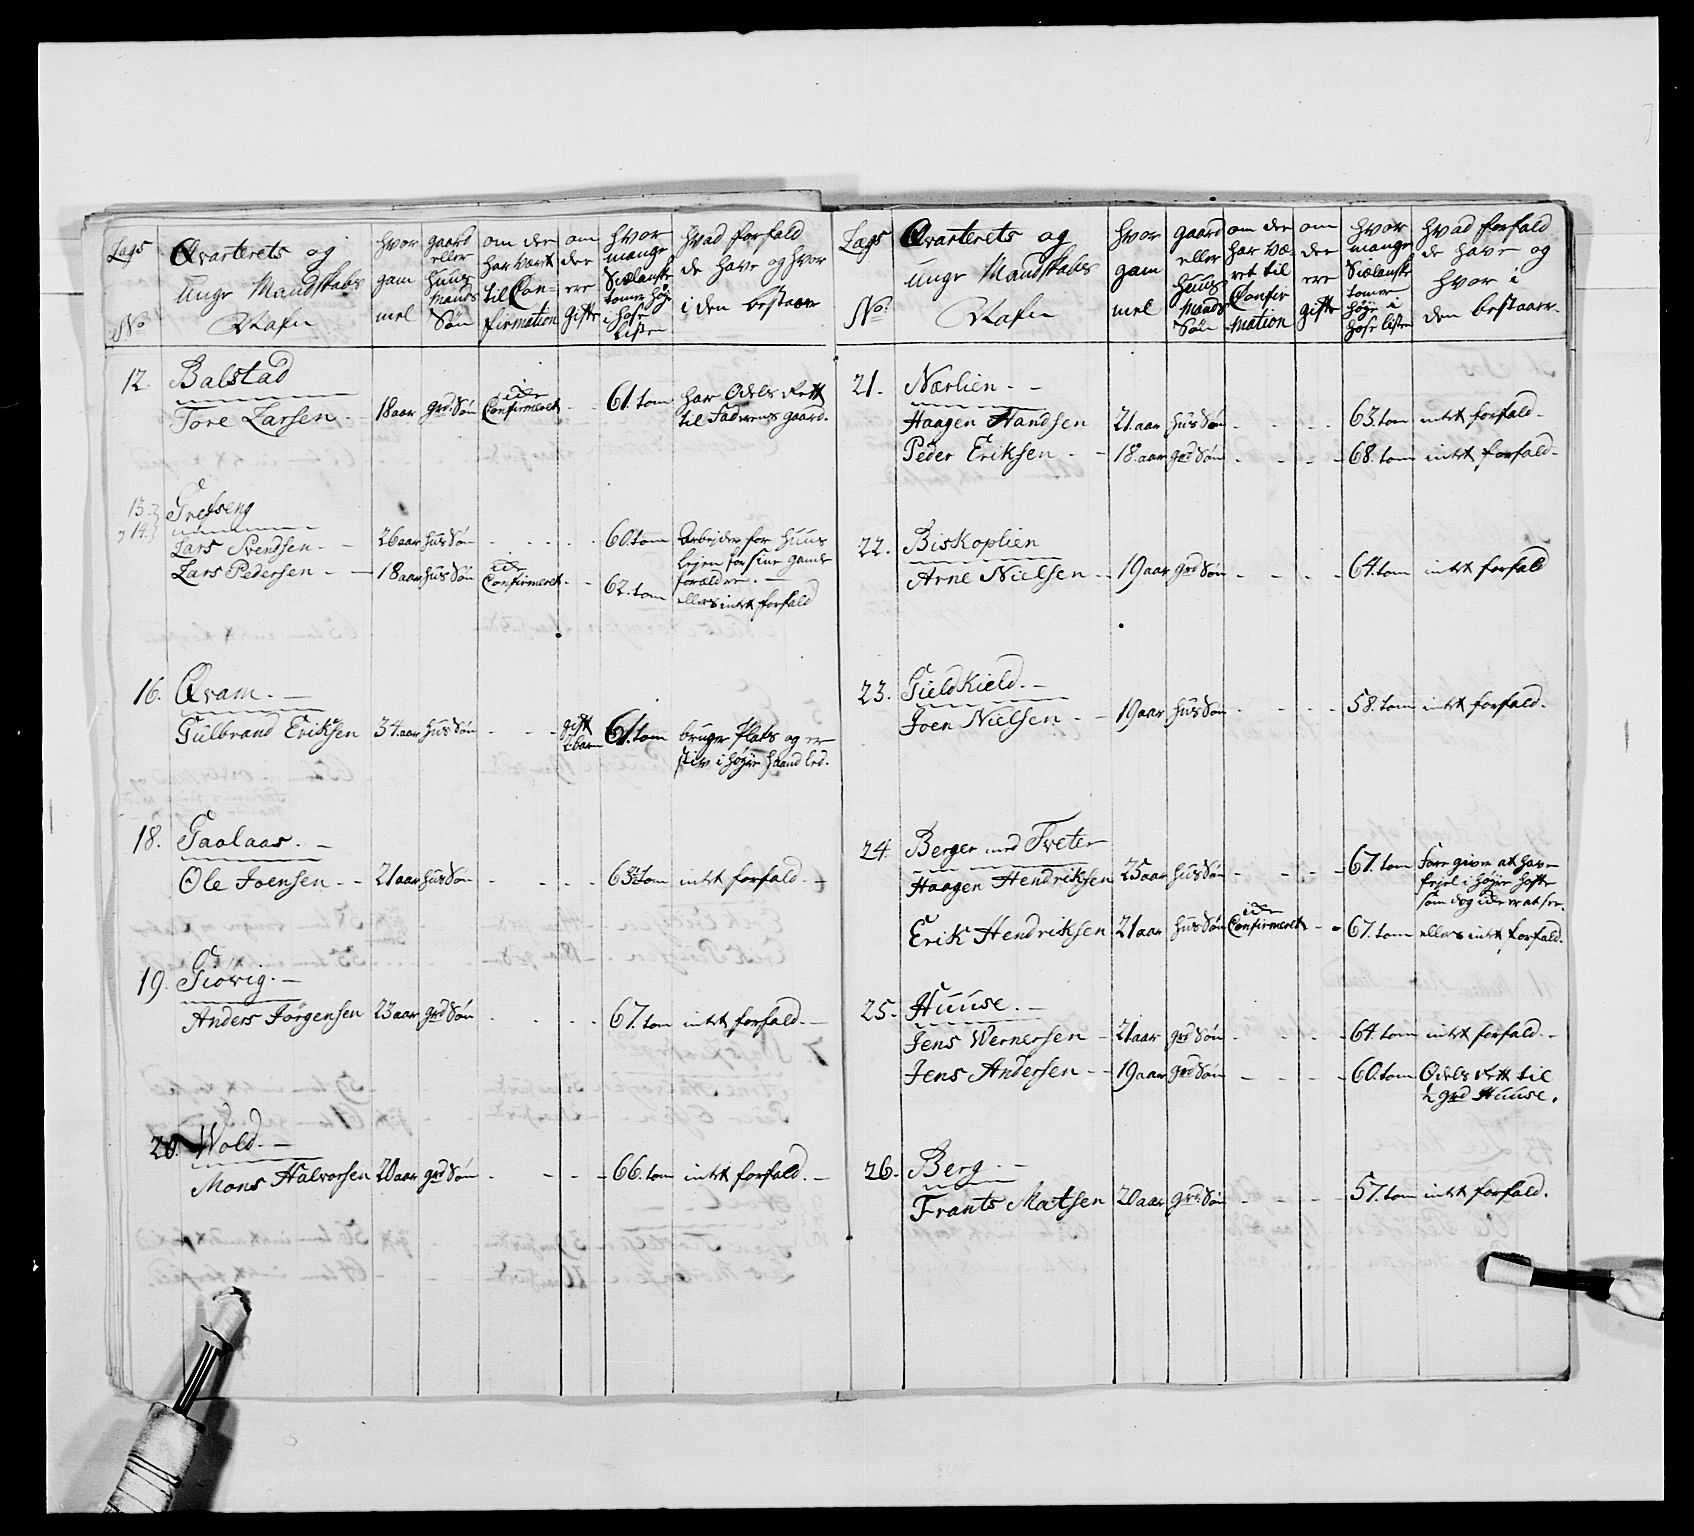 Lægs No
Qvarterets og unge Mandskabs Nafn
hvor gam mel
gaard eller huus Mands Søn
om de har vært til Con- firmation
om de ere gifte
hvor mange Siælanske tomer høje i hose Lister
hvad forfald de have og hvor i den bestaar
12. Balstad
Tore Larsen - 18 aar grd: Søn icke Confirmeret - - 61. tom har Odels Rett til Faderens gaard.
13. 14. Grefseng
Lars Svendsen - 26 aar hus Søn - - - - 60. tom Arbejder for huus lejen for sine gamle forældre. -
Lars Pedersen - 18 aar hus Søn icke Confirmeret - - 62. tom ellers intet forfald
16. Qvam. -
Gulbrand Eriksen 34. aar hus Søn - - - gift 2 barn 61. tom bruger Plads og er stiv i højre haand led.
18. Gaalaas. -
Ole Joensen - - 21 aar hus Søn - - - - 63½ tom intet forfald. -
19. Giøvig. -
Anders Jørgensen 23 aar grd Søn - - - - 67. tom intet forfald. -
20. Wold. -
Mons Halvorsen 20 aar grd Søn - - - - 66. tom intet forfald. -
Lægs No.
Qvarterets og unge Mandskabs Nafn
hvor gam mel
gaard eller huus Mands Søn
om de har væ- ret til Confir mation
om de ere gifte
hvor mange Siælanske tommer høje i hose lister
hvad forfald de have og hvor i den bestaaer.
21. Nærlien. - -
Haagen Handsen 21. aar hus Søn - - - - 63. tom intet forfald -
Peder Eriksen - - 18. aar grd Søn - - - - 68. tom intet forfald -
22. Biskoplien
Arne Nielsen - - 19 aar grd Søn - - - - 64. tom intet forfald
23. Gieldkield. -
Joen Nielsen - - 19 aar hus Søn - - - - 58. tom intet forfald.
24. Berger med Tveter
Haagen Hendriksen 25 aar hus Søn - - - - 67. tom Fore giver at have fejel i højre hofte som dog icke er at see.
Erik Hendriksen 21 aar hus Søn icke Confirmeret - - 67. tom ellers intet forfald.
25. Huuse. -
Jens Wernersen - 21 aar grd Søn - - - - 64. tom intet forfald. -
Jens Andersen - - 19 aar grd Søn - - - - 60. tom Odels rett til ½ grd Huuse.
26. Berg. -
Frants Matsen 20 aar grd: Søn - - - - 57. tom intet forfald.